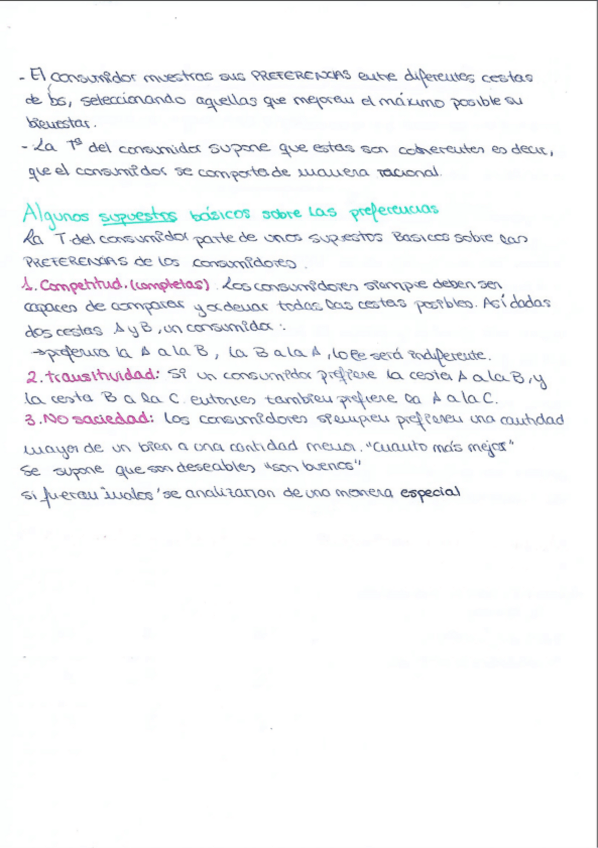 - El consumidor muestras sus PREFERENCIAS entre diferentes cestas
de bs, seleccionando aquellas que mejoren el máximo posible su
bienestar.
- La Tª del consumidor supone que estas son coherentes es decir,
que el consumidor se comporta de manera racional.
Algunos supuestos básicos sobre las preferencias.
La T. del consumidor parte de unos supuestos Basicos sobre las
PREFERENCIAS de los consumidores.
1. Competitud. (completas). Los consumidores siempre deben ser
capaces de comparar y ordenar todas las cestas posibles. Así dadas
dos cestas A y B, un consumidor:
→ preferira la A a la B, la B a la A, lo le será indiferente.
2. transitividad: Si un consumidor prefiere la cesta A a la B, y
la cesta B a la C. entonces tambien prefiere la A a la C.
3. No saciedad: los consumidores siempren prefieren una cantidad
mayor de un bien a una cantidad menor. "Cuanto más mejor"
Se supone que son deseables "son buenos"
si fueran "malos' se analizarian de una manera especial